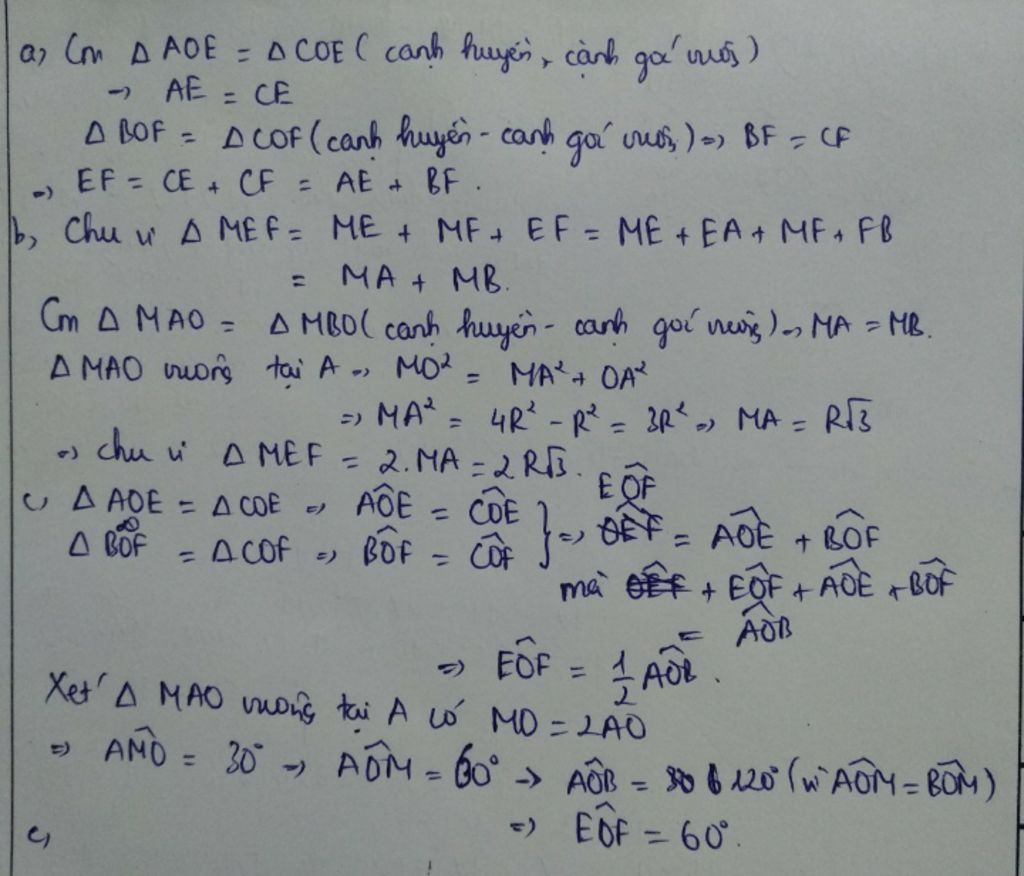 a, Cm Δ AOE = Δ COE ( cạnh huyền, cạnh góc vuông )
→ AE = CE
Δ BOF = Δ COF ( cạnh huyền - cạnh góc vuông ) => BF = CF
=> EF = CE + CF = AE + BF .
b, Chu vi Δ MEF = ME + MF + EF = ME + EA + MF + FB
= MA + MB.
Cm Δ MAO = Δ MBO ( cạnh huyền - cạnh góc vuông ) => MA = MB.
Δ MAO vuông tại A => MO² = MA² + OA²
=> MA² = 4R² - R² = 3R² => MA = R√3
=> chu vi Δ MEF = 2.MA = 2R√3.
c, Δ AOE = Δ COE => AÔE = CÔE
Δ BOF = Δ COF => BÔF = CÔF } => EÔF = AÔE + BÔF
mà + EÔF + AÔE + BÔF
= AÔB
=> EÔF = 1/2 AÔB .
Xét Δ MAO vuông tại A có MO = 2AO
=> AM̂O = 30° → AÔM = 60° → AÔB = 120° (vì AÔM = BÔM)
=> EÔF = 60°.
c,